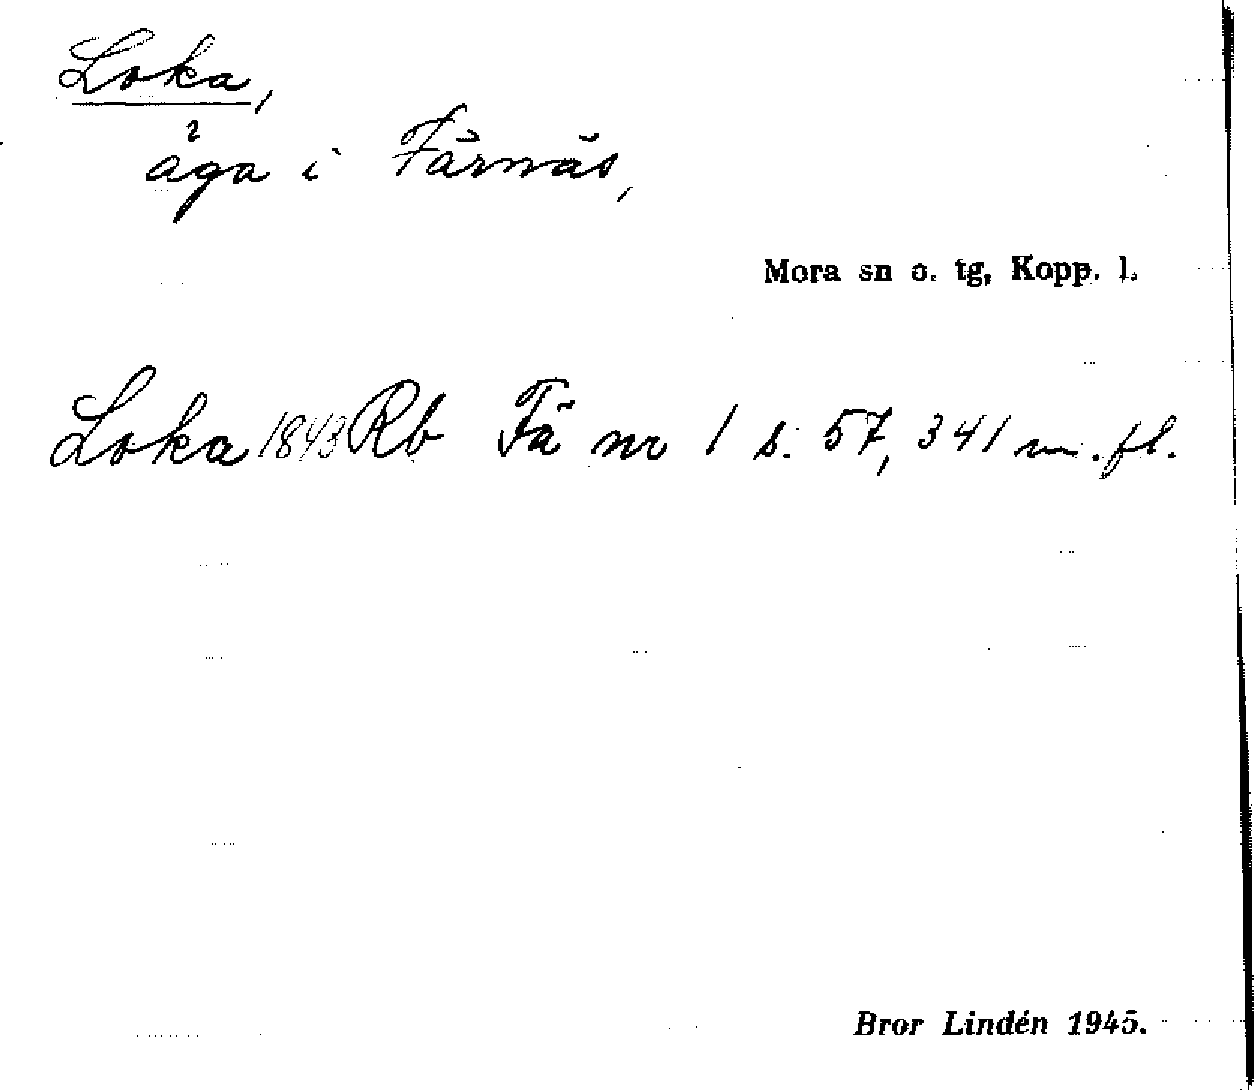 Loka,
äga i Färnäs,
Mora sn o. tg, Kopp. l.
Loka 1843 Rb Fä nr 1 s. 57, 341 m. fl.
Bror Lindén 1945.